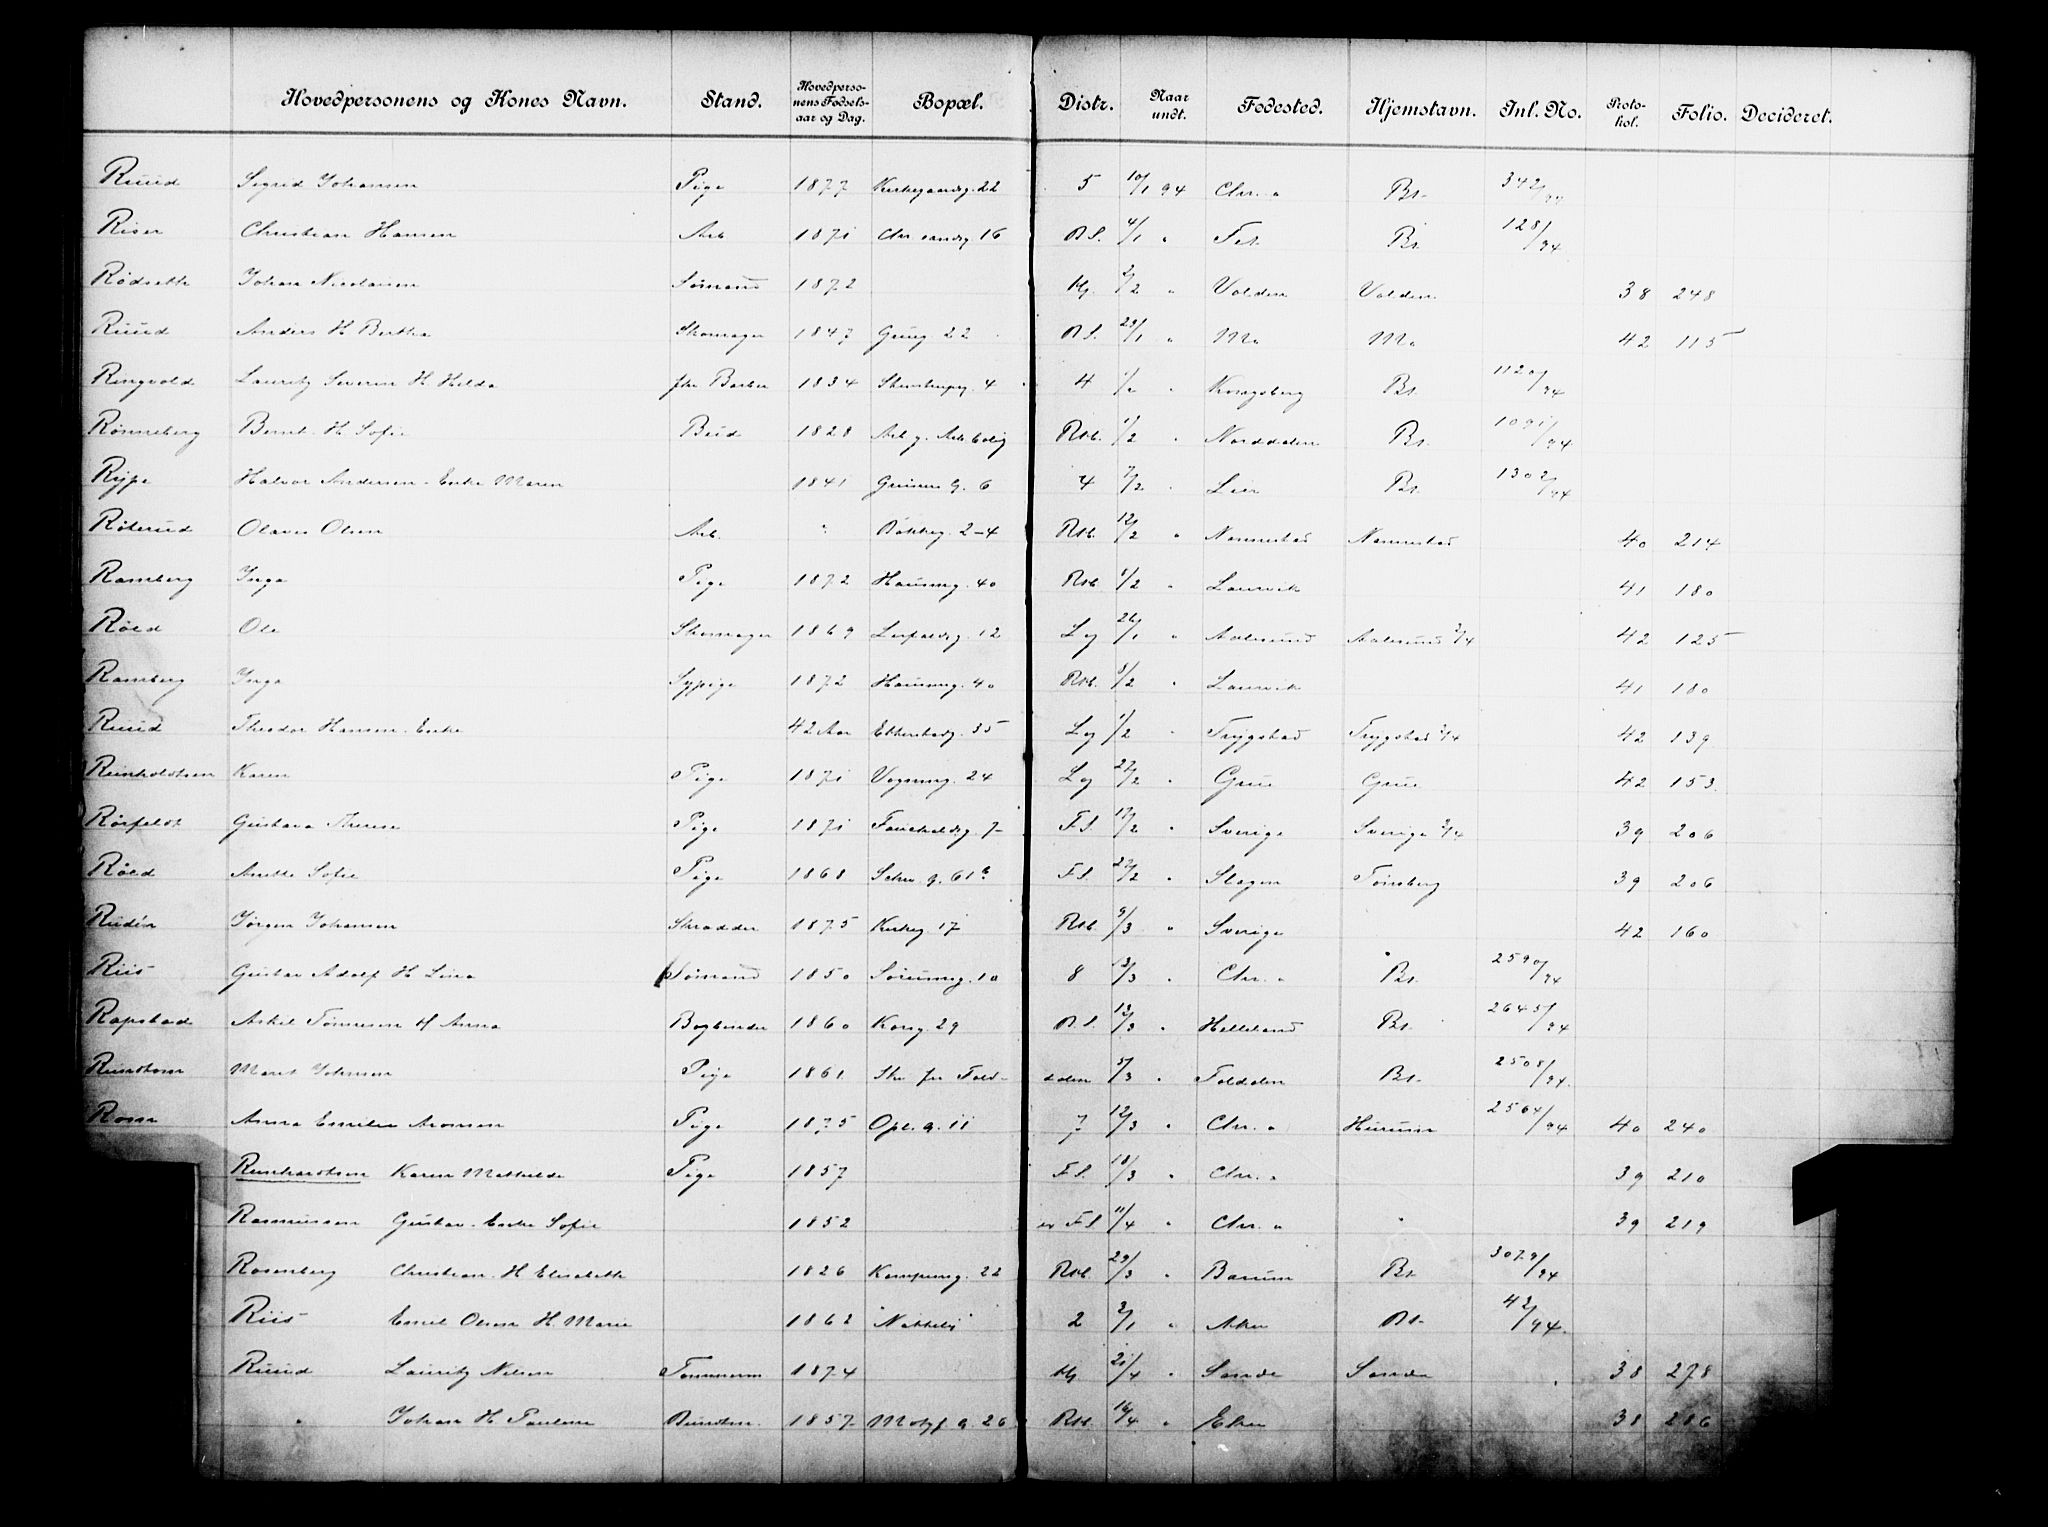 Hovedpersonens og Kones Navn. Stand. Hovedpersonens Fødselsaar og Dag. Bopæl. Distr. Naar undt. Fødested. Hjemstavn. Inl. No. Protokol. Folio. Decideret.
Ruud Sigrid Johansen Pige 1877 Kirkegaardsg. 22 5 10/1 94 Chr. a Bt. 342/94
Riser Christian Hansen Arb 1871 Chr. sandsg 16 B.S. 4/1 " Fet. Bt. 128/94
Rødseth Johan Nicolaisen Sømand 1872 Hj. 2/2 " Volden Volden 38 248
Ruud Anders H Bertha Skomager 1847 Grug 22 B.S. 23/1 " Mo Mo 42 115
Ringvold Lauritz Severin H Hilda fhv Barber 1834 Stenstrupg. 4 4 Kongsberg Bt. 1120/94
Rønneberg Bernt. H Sofie Bud 1828 Arb g. Arb bolig Rtb. 1/2 " Norddalen Bt. 1091/94
Rype Halvor Andersen - Enke Maren 1841 Griners G. 6 4 7/2 " Lier Bt. 1302/94
Røterud Olaves Olsen Arb. " Bakkeg. 2-4 Rtb. 12/2 " Nannestad Nannestad 40 214
Ramberg Inga Pige 1872 Hausmg. 40 Rtb. 1/2 " Laurvik 41 180
Røed Ole Skomager 1869 Leirfaldsg. 12 Lg 26/1 " Aalesund Aalesund 2/4 42 125
Ramberg Inga Sypige 1872 Hausmg. 40 Rtb. 5/2 " Laurvik 41 180
Ruud Theodor Hansen. Enke 42 Aar Ekkersbadg. 35 Lg 1/2 " Trygstad Trygstad 2/4 42 139
Reinholdtsen Karen Pige 1871 Vognmg. 24 Lg 22/2 " Grue Grue 42 153
Rørfeldt Gustava Therese Pige 1871 Fauchaldsg. 7 F.S. 17/2 " Sverige Sverige 2/4 39 206
Røed Anette Sofie Pige 1868 Schw. g. 61 b F.S. 22/2 " Slagen Tønsberg 39 206
Rudin Jørgen Johansen Skrædder 1875 Kirkeg 17 Rtb. 9/3 " Sverige 42 160
Riis Gustav Adolf H Lina Sømand 1850 Sørumsg. 10 8 13/3 " Chr. a Bt. 2590/94
Rapstad Askil Tønnesen H Anna Bogbinder 1860 Kong. 29 B.S. 12/3 " Helleland Bt. 2645/94
Marit Johnsen Pige 1861 Skr. fra Fold- dalen 5/3 " Foldalen Bt. 2508/94
Rom Anna Emilie Aronsen Pige 1875 Opl. g. 11 7 12/3 " Chr. a Hurum 2564/94 40 240
Reinhardtsen Karen Mathilde Pige 1857 F.S. 10/3 " Chr. a 39 210
Rasmussen Gustav. Enke Sofie 1852 F.S. 11/4 " Chr. a " 39 219
Rosenberg Christian. H Elisabeth 1826 Kampensg. 22 Rtb. 29/3 " Bærum Bt 3079/94
Riis Emil Olsen H. Marie 1862 "Nokkeby" 2 2/1 " Aker Bt. 42/94
Ruud Lauritz Nilsen Tømmerm 1874 Hj. 21/4 " Sande Sande 38 278
" Johan H Pauline 1857 Motzf. g. 26 Rtb. 16/4 " Eker 38 286